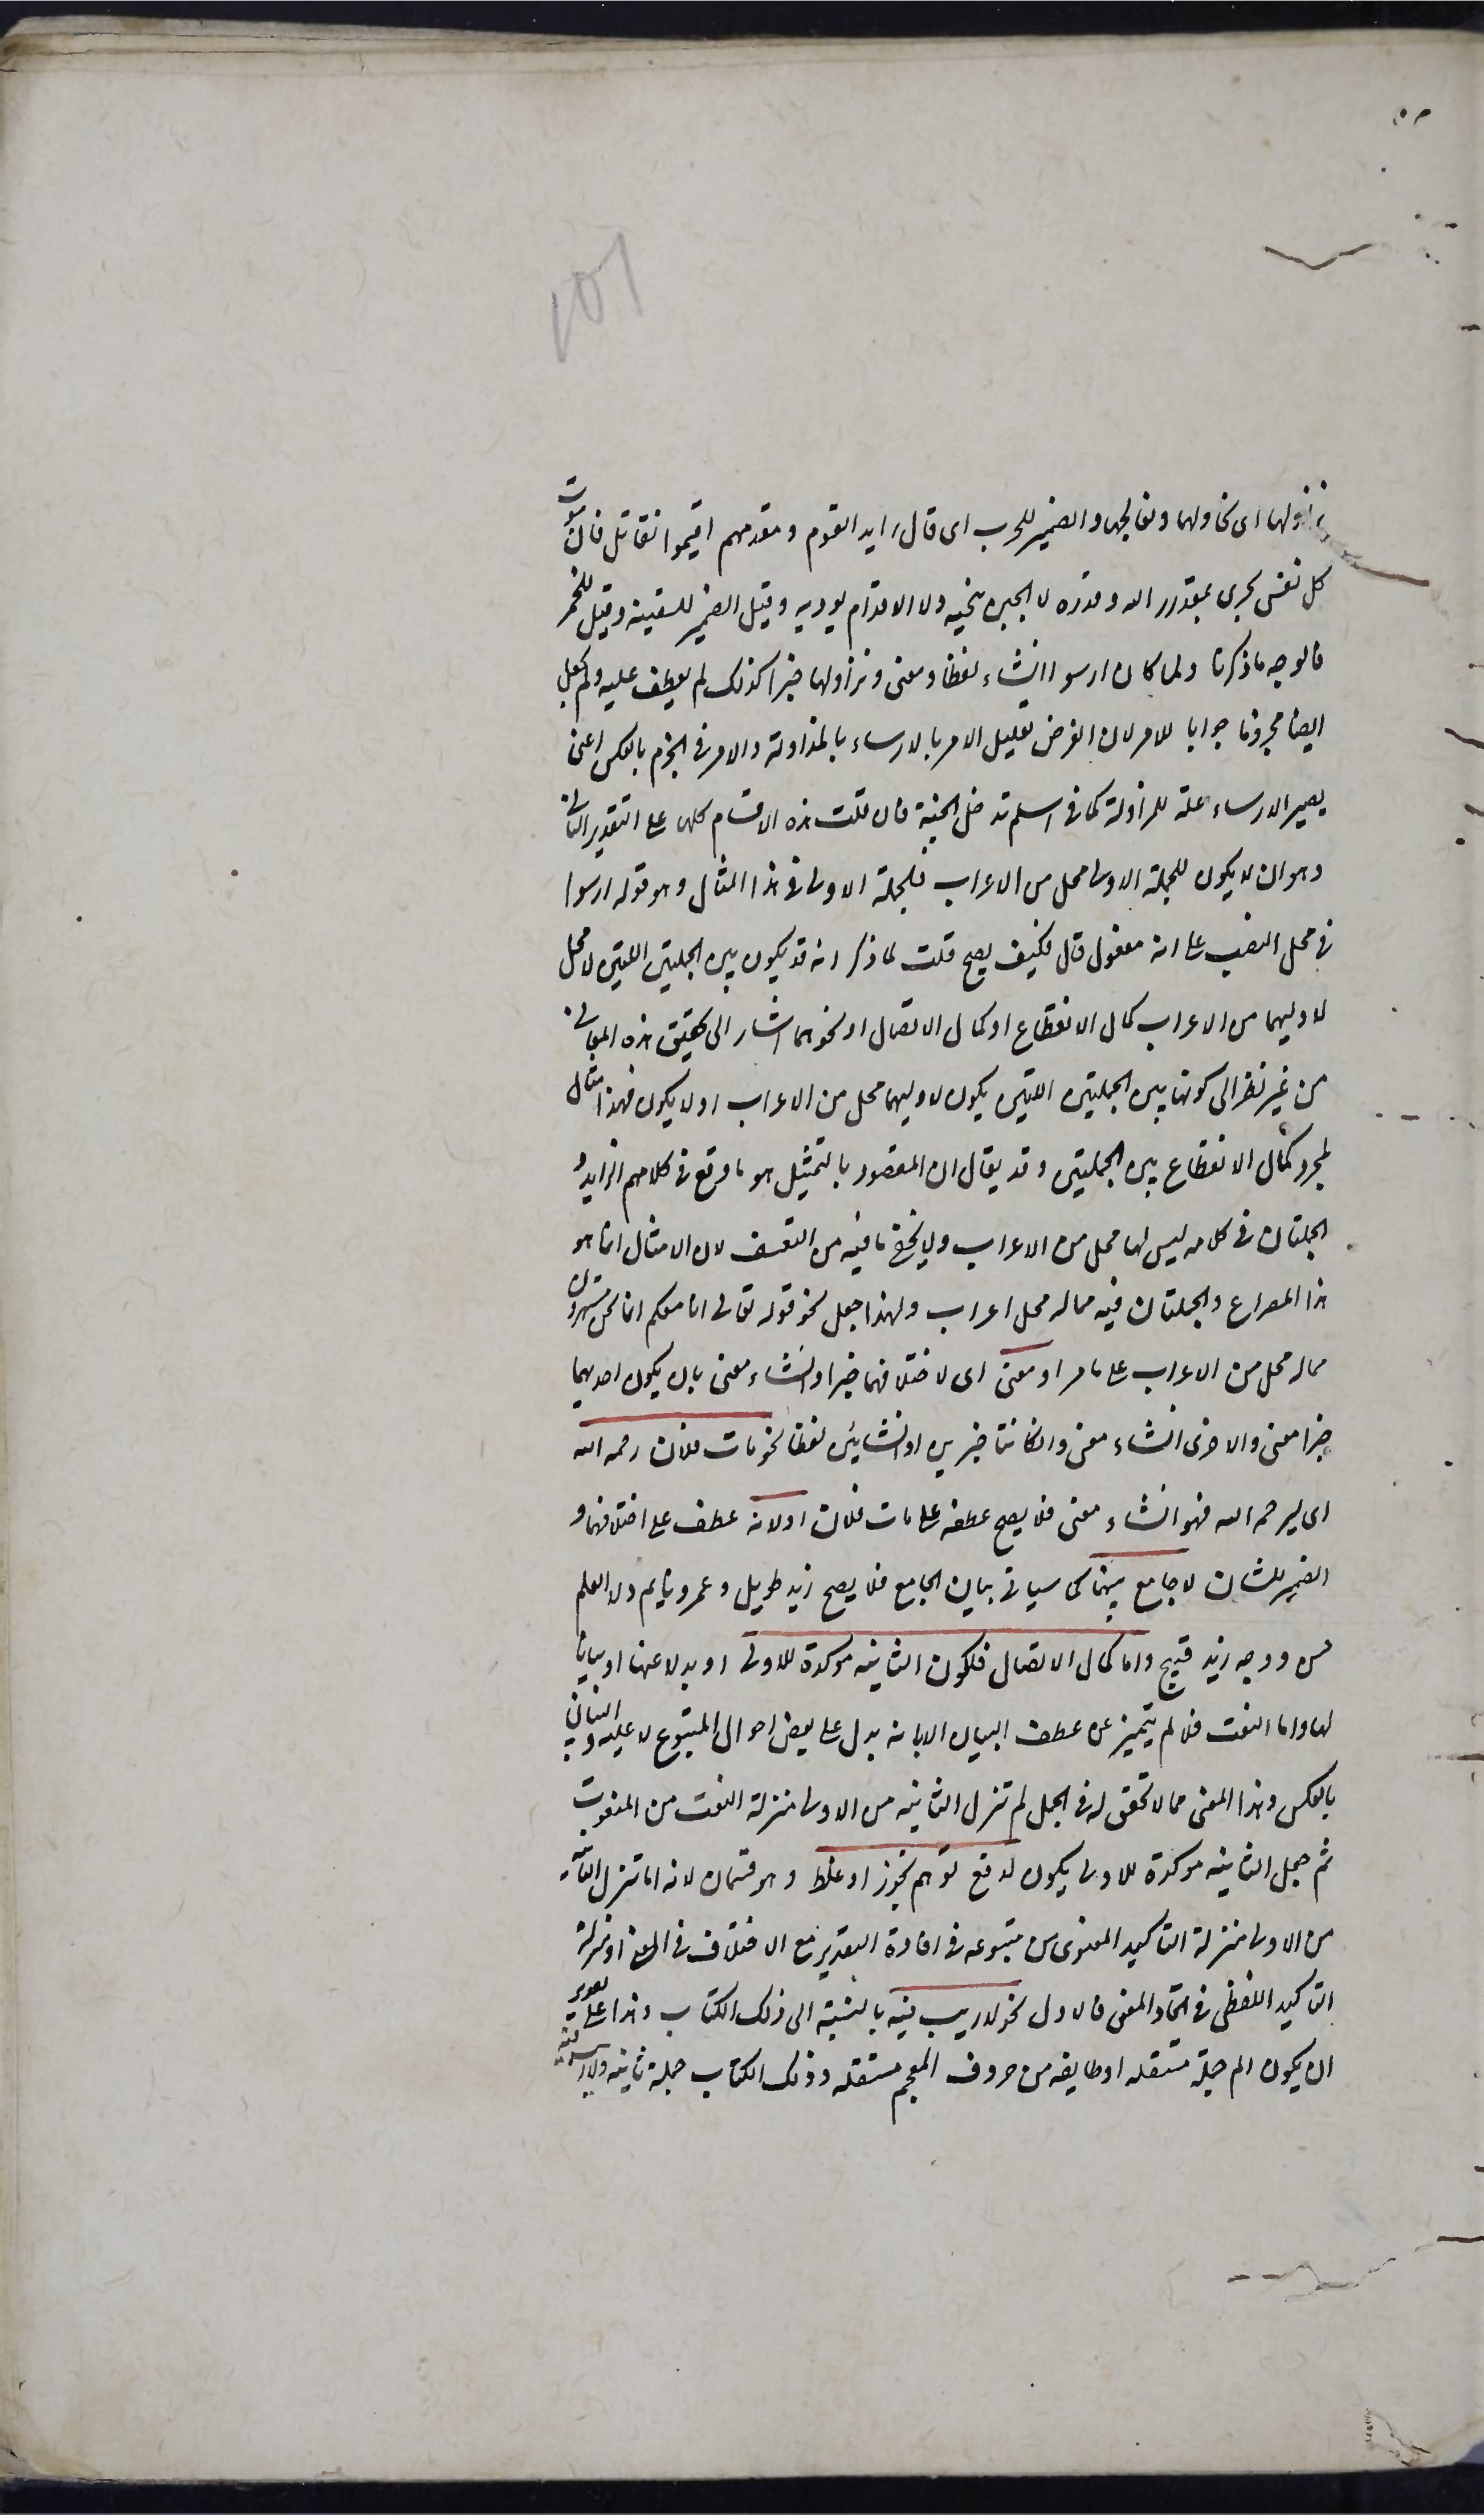 نزاولها اى نحاولها ونعالجها والضمير للحرب اى قال رايد القوم ومقدمهم اقيموا نقاتل فان موت
كل نفس يجرى بمقدور الله وقدره لا الجبن ينجيه ولا الاقدام يوديه وقيل الضمير للسفينه وقيل للخمر
فالوجه ما ذكرنا ولما كان ارسوا انشاء لفظا ومعنى ونزاولها خبرا كذلك لم يعطف عليه ولم يجعل
ايضا مجزوما جوابا للامر لان الغرض تعليل الامر بالارساء بالمزاولة والامر فى الجزم بالعكس اعنى
يصير الارساء علة للمزاولة كما فى اسلم تدخل الجنة فان قلت هذه الاقسام كلها على التقدير الثانى
وهو ان لا يكون للجملة الاولى محل من الاعراب فالجملة الاولى فى هذا المثال وهو قوله ارسوا
فى محل النصب على انه مفعول قال فكيف يصح قلت لما ذكر انه قد يكون بين الجملتين اللتين لا محل
لاوليهما من الاعراب كمال الانقطاع او كمال الاتصال او نحوهما اشار الى تحقيق هذه المعانى
من غير نظر الى كونها بين الجملتين اللتين يكون لاوليهما محل من الاعراب او لا يكون فهذا مثال
لمجرد كمال الانقطاع بين الجملتين وقد يقال ان المقصود بالتمثيل هو ما وقع فى كلامهم الرايد و
الجملتان فى كلامه ليس لهما محل من الاعراب ولا يخفى ما فيه من التعسف لان الامثال انما هو
هذا المصراع والجملتان فيه مما له محل اعراب ولهذا جعل نحو قوله تعالى انا معكم انما نحن مستهزؤن
مما له محل من الاعراب على ما مر او معنى اى لاختلافهما خبرا وانشاء معنى بان يكون احديهما
خبرا معنى والاخرى انشاء معنى وان كانتا خبرين او انشائين لفظا نحو مات فلان رحمه الله
اى ليرحمه الله فهو انشاء معنى فلا يصح عطفه على مات فلان او لانه عطف على اختلافهما و
الضمير للشان لا جامع بينهما كما سياتى بيان الجامع فلا يصح زيد طويل وعمرو نايم ولا العلم
حسن ووجه زيد قبيح واما كمال الاتصال فلكون الثانيه موكدة للاولى او بدلا عنها او بيانا
لها واما النعت فلما لم يتميز عن عطف البيان الا بانه يدل على بعض احوال المتبوع لا عليه والبيان
بالعكس وهذا المعنى مما لا تحقق له فى الجمل لم تنزل الثانيه من الاولى منزلة النعت من المنعوت
ثم جعل الثانيه موكدة للاولى يكون لدفع توهم تجوز او غلط وهو قسمان لانه اما تنزل الثانية
من الاولى منزلة التاكيد المعنوى من متبوعه فى افادة التقرير مع الاختلاف فى المعنى او منزلة
التاكيد اللفظى فى اتحاد المعنى فالاول نحو لا ريب فيه بالنسبة الى ذلك الكتاب وهذا على تقدير
ان يكون الم جملة مستقله او طايفه من حروف المعجم مستقله وذلك الكتاب جملة ثانيه ولا ريب فيه